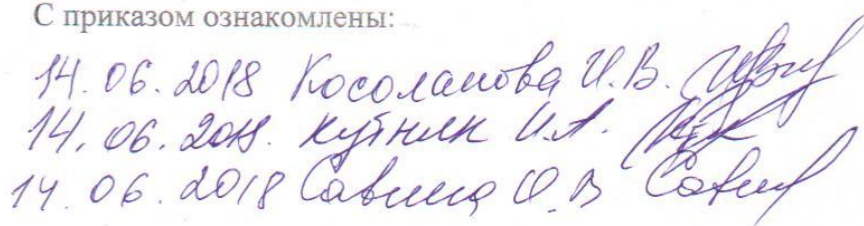 С приказом ознакомлены:
14.06.2018 Косолапова И.В.
14.06.2018. Кутняк И.А.
14.06.2018 Савина О.В